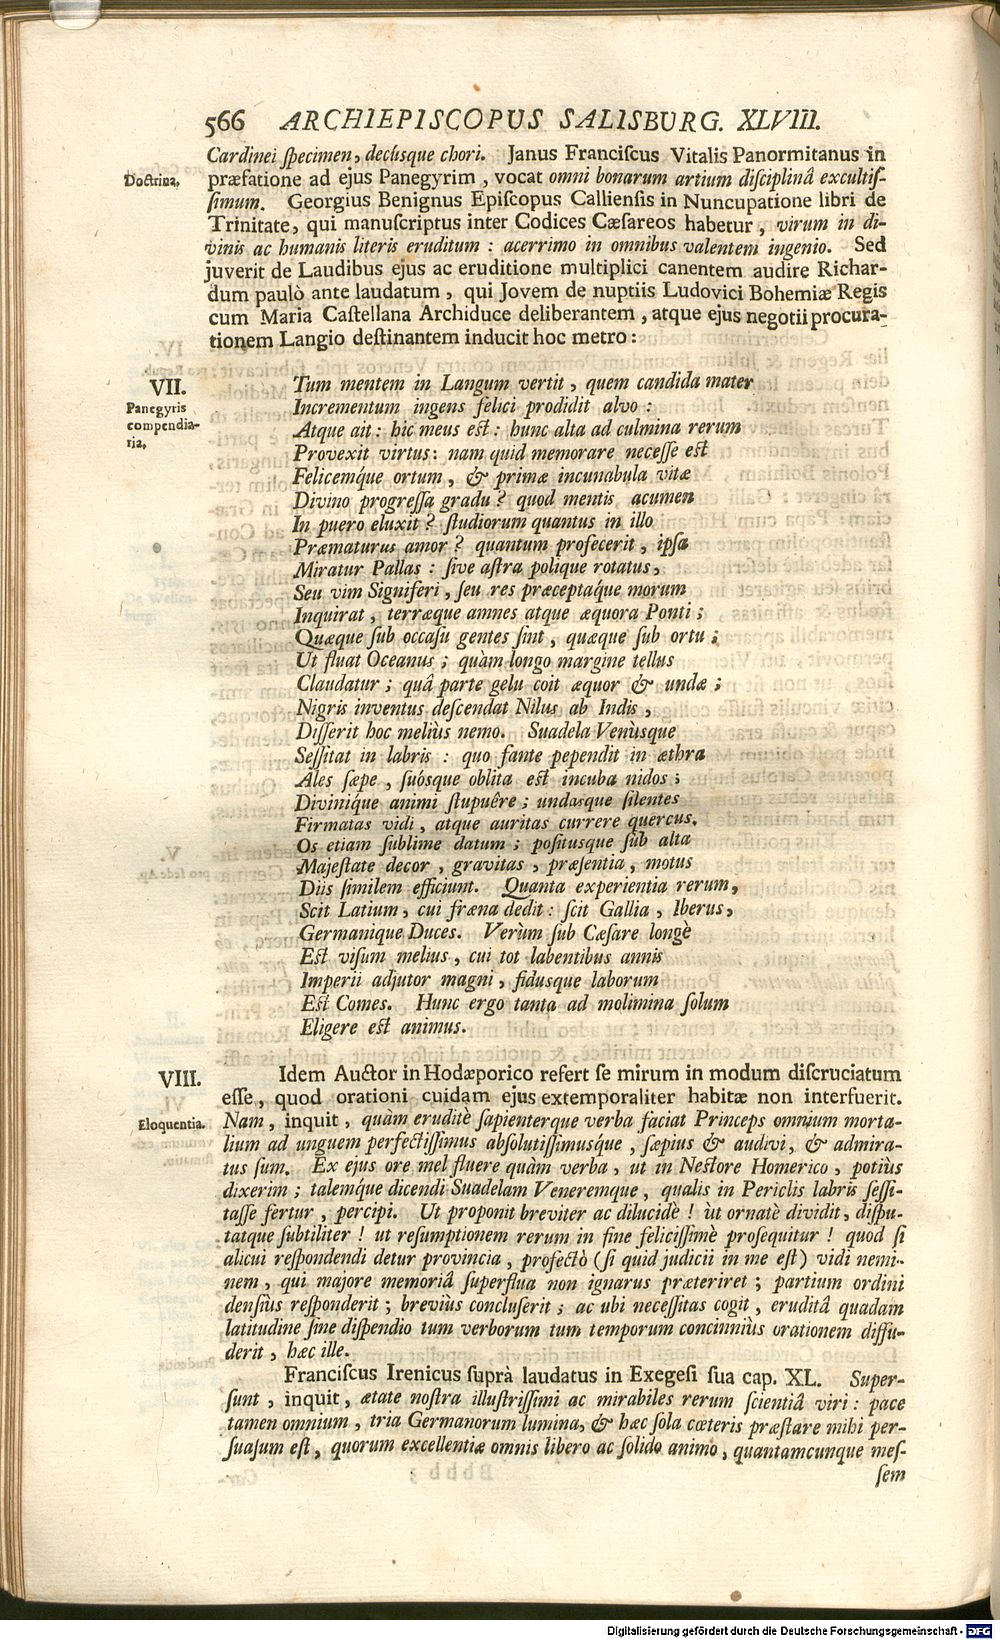 566 ARCHIEPISCOPUS SALISBURG. XLVIII.
Cardinei ſpecimen, decúsque chori. Janus Franciſcus Vitalis Panormitanus in
Doctrina, præfatione ad ejus Panegyrim, vocat omni bonarum artium diſciplinâ excultiſ-
ſimum. Georgius Benignus Epiſcopus Callienſis in Nuncupatione libri de
Trinitate, qui manuſcriptus inter Codices Cæſareos habetur, virum in di-
vinis ac humanis literis eruditum : acerrimo in omnibus valentem ingenio. Sed
juverit de Laudibus ejus ac eruditione multiplici canentem audire Richar-
dum paulò ante laudatum, qui Jovem de nuptiis Ludovici Bohemiæ Regis
cum Maria Caſtellana Archiduce deliberantem, atque ejus negotii procura-
tionem Langio deſtinantem inducit hoc metro:
VII.
Panegyris
compendia-
ria,
Tum mentem in Langum vertit, quem candida mater
Incrementum ingens felici prodidit alvo :
Atque ait : hic meus eſt : hunc alta ad culmina rerum
Provexit virtus: nam quid memorare neceſſe eſt
Felicemq́ue ortum, & primæ incunabula vitæ
Divino progreſſa gradu ? quod mentis acumen
In puero eluxit ? ſtudiorum quantus in illo
Præmaturus amor ? quantum profecerit, ipſa
Miratur Pallas : ſive aſtra polique rotatus,
Seu vim Signiferi, ſeu res præceptaq́ue morum
Inquirat, terræque amnes atque æquora Ponti ;
Quæque ſub occaſu gentes ſint, quæque ſub ortu ;
Ut fluat Oceanus ; quàm longo margine tellus
Claudatur ; quâ parte gelu coit æquor & undæ ;
Nigris inventus deſcendat Nilus ab Indis,
Diſſerit hoc meliùs nemo. Suadela Venùsque
Seſſitat in labris : quo fante pependit in æthra
Ales ſæpe, ſuósque oblita eſt incuba nidos ;
Diviniq́ue animi ſtupuêre ; undasque ſilentes
Firmatas vidi, atque auritas currere quercus.
Os etiam ſublime datum ; poſitusque ſub alta
Majeſtate decor, gravitas, præſentia, motus
Diis ſimilem efficiunt. Quanta experientia rerum,
Scit Latium, cui fræna dedit : ſcit Gallia, Iberus,
Germanique Duces. Verùm ſub Cæſare longè
Eſt viſum melius, cui tot labentibus annis
Imperii adjutor magni, fidusque laborum
Eſt Comes. Hunc ergo tanta ad molimina ſolum
Eligere eſt animus.
VIII. Idem Auctor in Hodæporico refert ſe mirum in modum diſcruciatum
eſſe, quod orationi cuidam ejus extemporaliter habitæ non interfuerit.
Eloquentia. Nam, inquit, quàm eruditè ſapienterque verba faciat Princeps omnium morta-
lium ad unguem perfectiſſimus abſolutiſſimusque, ſæpius & audivi, & admira-
tus ſum. Ex ejus ore mel fluere quàm verba, ut in Neſtore Homerico, potiùs
dixerim ; talemq́ue dicendi Suadelam Veneremque, qualis in Periclis labris ſeſſi-
taſſe fertur, percipi. Ut proponit breviter ac dilucidè ! ùt ornatè dividit, diſpu-
tatque ſubtiliter ! ut reſumptionem rerum in fine feliciſſimè proſequitur ! quod ſi
alicui reſpondendi detur provincia, profectò (ſi quid judicii in me eſt) vidi nemi-
nem, qui majore memoriâ ſuperflua non ignarus præteriret ; partium ordini
denſiùs reſponderit ; breviùs concluſerit ; ac ubi neceſſitas cogit, eruditâ quadam
latitudine ſine diſpendio tum verborum tum temporum concinniùs orationem diffu-
derit, hæc ille.
Franciſcus Irenicus ſuprà laudatus in Exegeſi ſua cap. XL. Super-
ſunt, inquit, ætate noſtra illuſtriſſimi ac mirabiles rerum ſcientiâ viri : pace
tamen omnium, tria Germanorum lumina, & hæc ſola cœteris præſtare mihi per-
ſuaſum eſt, quorum excellentiæ omnis libero ac ſolido animo, quantamcunque meſ-
ſem
Digitalisierung gefördert durch die Deutsche Forschungsgemeinschaft - DFG